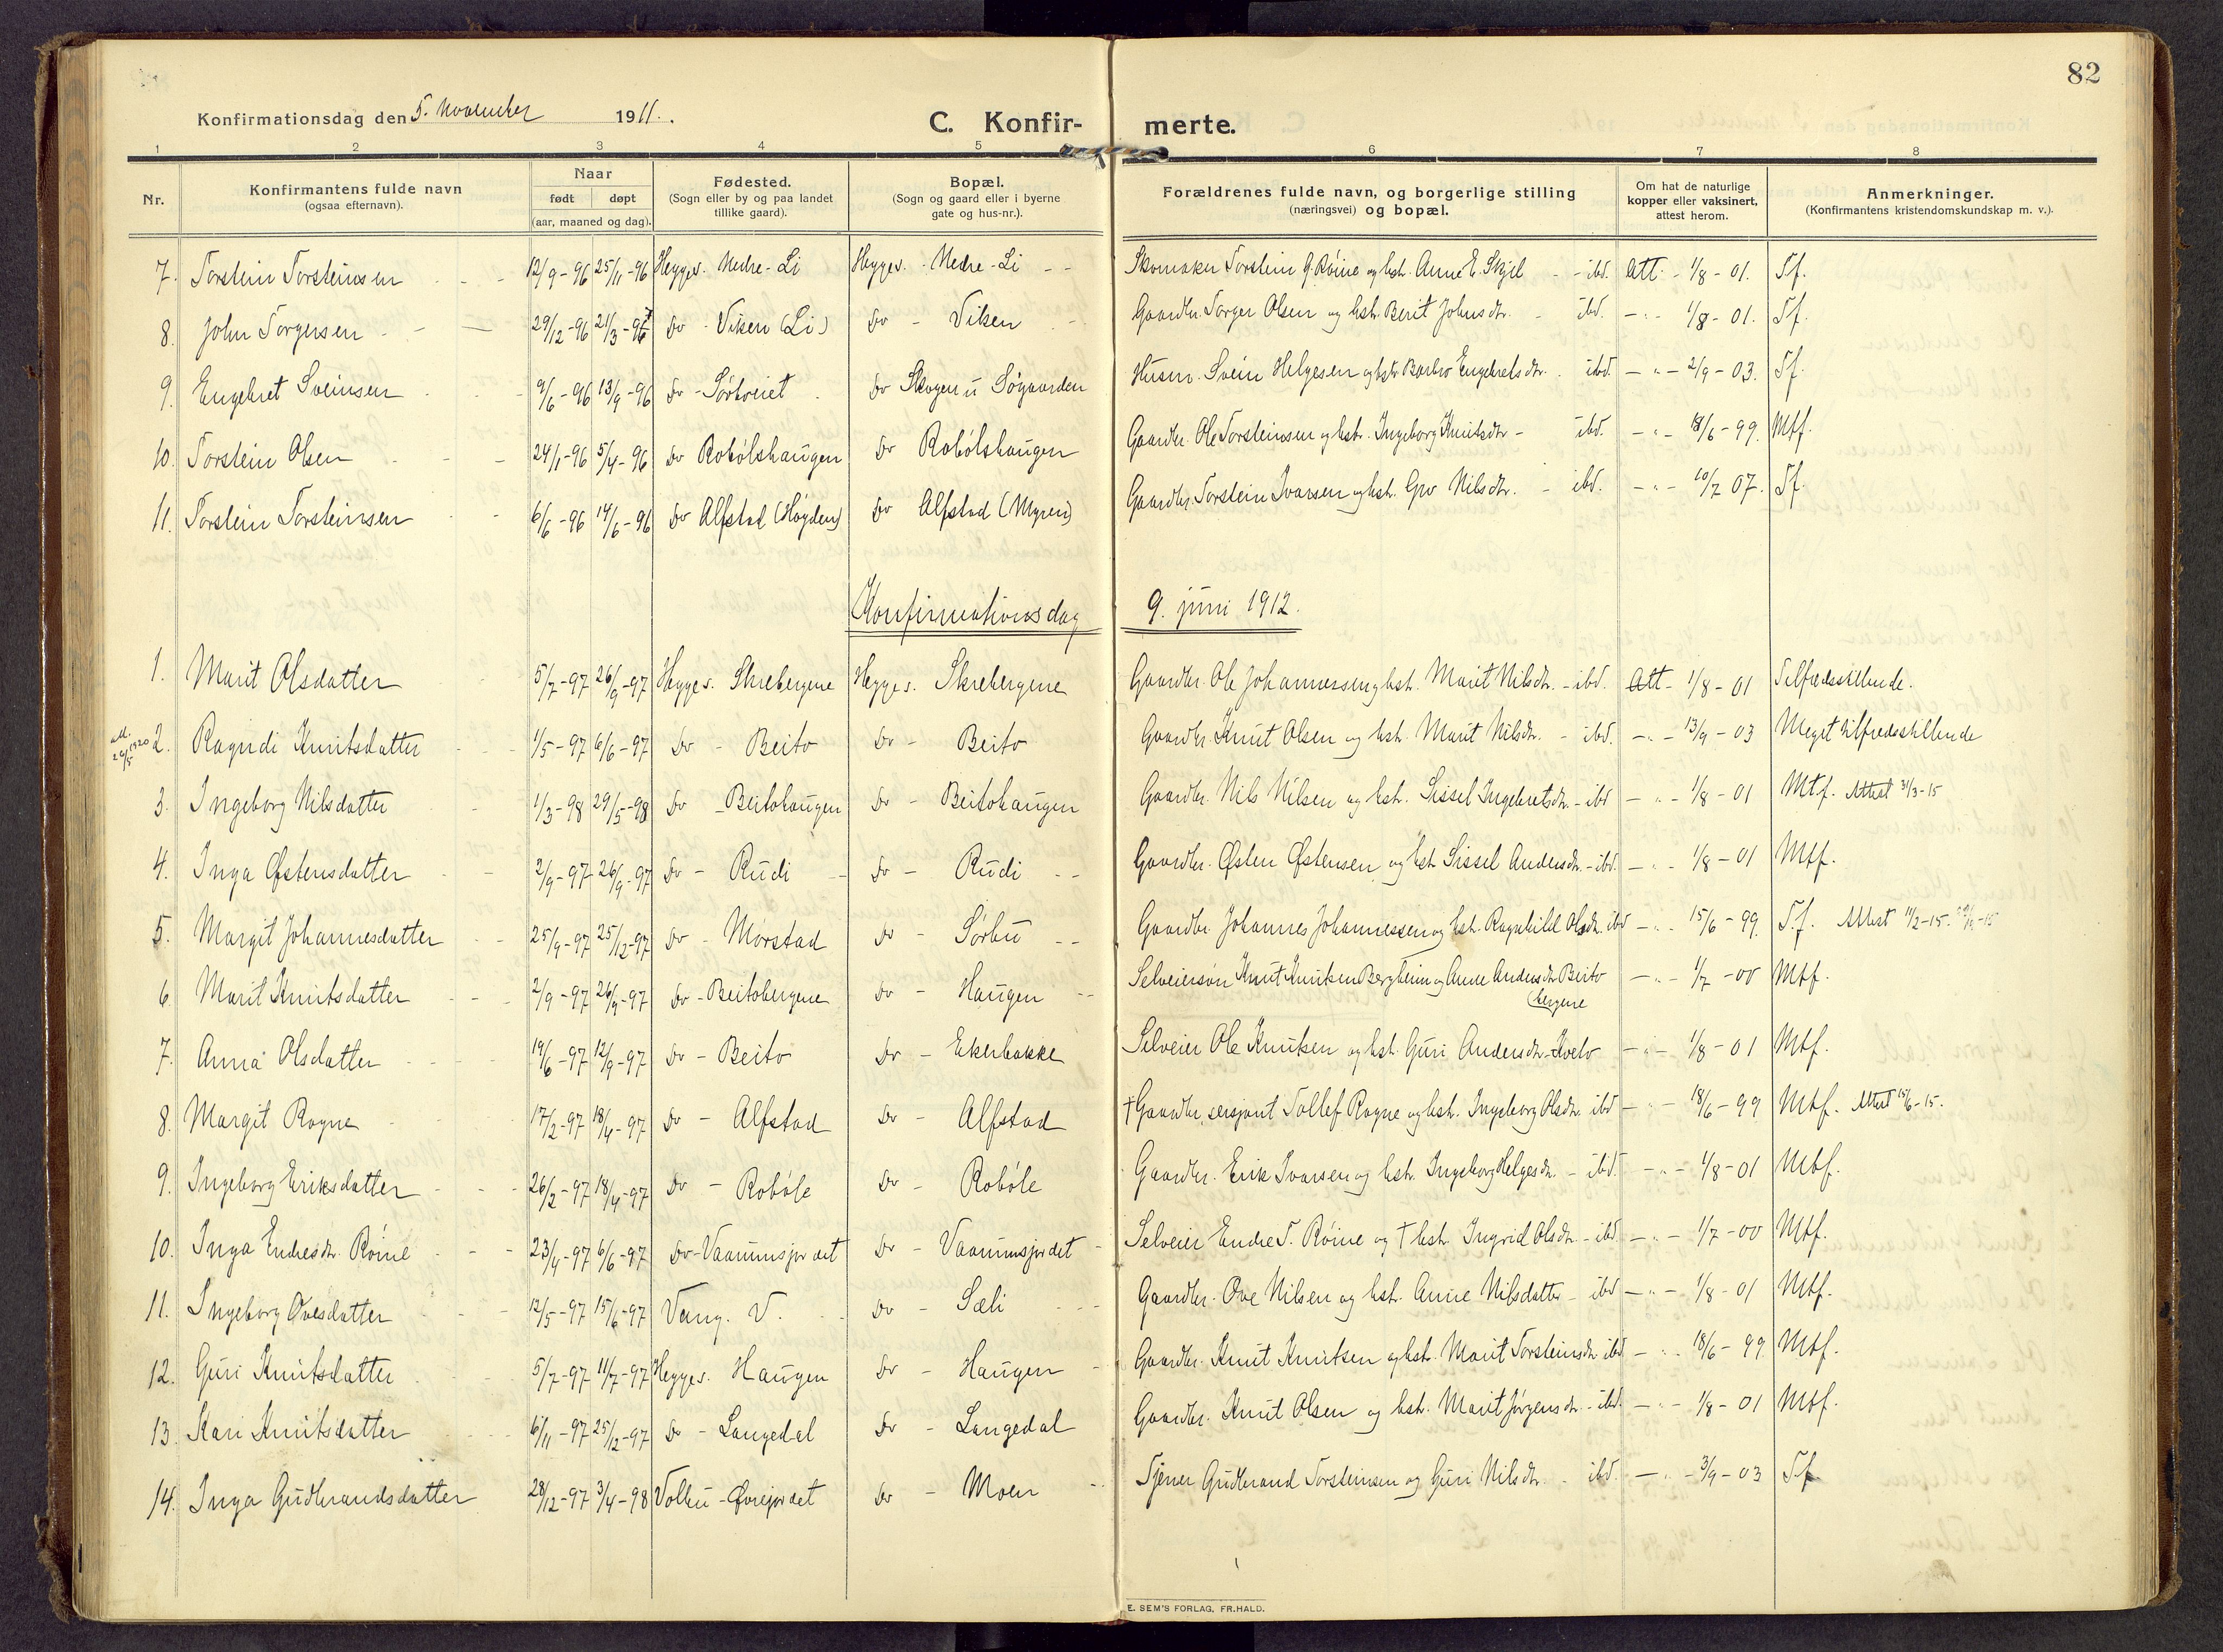 82
Konfirmationsdag den 5. November 1911.
C. Konfir- merte.
1 2 3 4 5 6 7 8
Nr.
Konfirmantens fulde navn
(ogsaa efternavn).
Naar
født døpt
(aar, maaned og dag).
Fødested.
(Sogn eller by og paa landet
tillike gaard).
Bopæl.
(Sogn og gaard eller i byerne
gate og hus-nr.).
Forældrenes fulde navn, og borgerlige stilling
(næringsvei) og bopæl.
Om hat de naturlige
kopper eller vaksinert,
attest herom.
Anmerkninger.
(Konfirmantens kristendomskundskap m. v.).
7. Torstein Torsteinsen 12/9-96 25/11-96 Hegges. Nedre-Li Hegges. Nedre-Li Skomaker Torstein G. Röine og hstr. Anne E. Skjel - ibd. Att. 1/8-01. Tf.
8. John Torgersen 29/12-96 21/3-97 Do - Viken (Li) Do - Viken Gaardbr. Torger Olsen og hstr. Berit Johnsdtr. - ibd. -"- 1/8-01. Tf.
9. Engebret Sveinsen 9/6-96 13/9-96 Do - Sörtveit Do Skogen u Sögaarden Husm. Svein Helgesen og hstr. Barbro Engebretsdtr. ibd. -"- 2/9-03. Tf.
10. Torstein Olsen 24/1-96 5/4-96 Do Robölshaugen Do Robölshaugen Gaardbr. Ole Torsteinsen og hstr. Ingeborg Knutsdtr - ibd. -"- 18/6-99. Mtf.
11. Torstein Torsteinsen 6/6-96 14/6-96 Do Alfstad (Høgden) Do Alfstad (Myren) Gaardbr. Torstein Ivarsen og hstr. Gro Nilsdtr. - ibd. -"- 10/7 07. Tf.
Konfirmationsdag 9. juni 1912.
1. Marit Olsdatter 5/7-97 26/9-97 Hegges. Skrebergene Hegges. Skrebergene Gaardbr. Ole Johannessen og hstr. Marit Nilsdtr. - ibd. Att - 1/8-01 Tilfredsstillende.
att. 29/5 1920 2. Ragndi Knutsdatter 1/5-97 6/6-97 Do - Beito Do - Beito Gaardbr. Knut Olsen og hstr. Marit Nilsdtr. - ibd. -"- 13/9-03 Meget tilfredsstillende
3. Ingeborg Nilsdatter 1/3-98 29/5-98 Do - Beitohaugen Do - Beitohaugen Gaardbr. Nils Nilsen og hstr. Sissel Ingebretsdtr. - ibd -"- 1/8-01 Mtf. Attest 31/3-15
4. Inga Østensdatter 2/9-97 26/9-97 Do - Rudi Do - Rudi Gaardbr. Østen Østensen og hstr Sissel Andersdtr. - ibd. -"- 1/8-01 Mtf.
5. Margit Johannesdatter 25/9-97 25/12-97 Do - Mörstad Do - Sörbu Gaardbr. Johannes Johannessen og hstr. Ragnhild Olsdtr. ibd -"- 15/6-99. T.f. Attest 11/2-15.
6. Marit Knutsdatter 2/9-97 26/9-97 Do - Beitobergene Do - Haugen Selveiersön Knut Knutsen Bergheim og Anne Andersdtr Beito bergene -"- 1/7-00 Mtf.
7. Anna Olsdatter 19/6-97 12/9-97 Do - Beito Do - Ekerbakke Selveier Ole Knutsen og hstr. Guri Andersdtr. - Kvelv -"- 1/8-01 Mtf.
8. Margit Rogne 17/2-97 18/4-97 Do - Alfstad Do - Alfstad † Gaardbr, sersjant Tollef Rogne og hstr. Ingeborg Olsdtr. ibd -"- 18/6-99 Mtf. Attest 15/6-15.
9. Ingeborg Eriksdatter 26/2-97 18/4-97 Do - Roböle Do - Roböle Gaardbr. Erik Ivarsen og hstr. Ingeborg Helgesdtr. - ibd. -"- 1/8-01 Mtf.
10. Inga Endresdtr. Röine 23/4-97 6/6-97 Do - Vaarumsjordet Do - Vaarumsjordet Selveier Endre T. Röine og † hstr. Ingrid Olsdtr. - ibd. -"- 1/7-00 Mtf.
11. Ingeborg Ovesdatter 12/5-97 15/6-97 Vang. V. Do - Sæli Gaardbr. Ove Nilsen og hstr. Anne Nilsdatter - ibd -"- 1/8-01 Mtf.
12. Guri Knutsdatter 5/7-97 11/7-97 Hegges. Haugen Do - Haugen Gaardbr. Knut Knutsen og hstr. Marit Torsteinsdtr ibd -"- 18/6-99. Mtf.
13. Kari Knutsdatter 6/11-97 25/12-97 Do - Langedal Do - Langedal Gaardbr. Knut Olsen og hstr. Marit Jörgensdtr. - ibd. -"- 1/8-01 Mtf.
14. Inga Gudbrandsdatter 28/12-97 3/4-98 Volbu - Øvrejordet Do - Moen Tjener Gudbrand Torsteinsen og Guri Nilsdtr. - ibd. -"- 3/9-03 Tf
E. SEM'S FORLAG, FR.HALD.